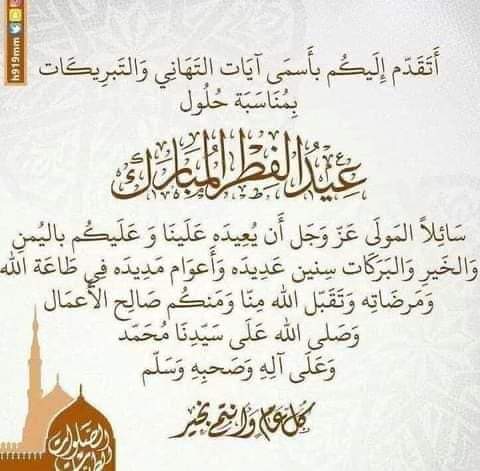 h919mm
أَتَقَدّم إِلَيكُم بأَسمَى آيَات التَهَانِي وَالتَبرِيكَات
بِمُنَاسَبَة حُلُول
عِيدُ الفِطْرِ المُبَارَك
سَائِلاً المَولَى عَزّ وَجَل أَن يُعِيدَه عَلَينَا وَ عَلَيكُم باليُمنِ
وَالخَيرِ وَالبَرَكَات سِنِين عَدِيدَه وَأَعوَام مَدِيدَه فِي طَاعَة الله
وَمَرضَاتِه وَتَقَبّل الله مِنّا وَمَنكُم صَالِح الأَعمَال
وَصَلى الله عَلَى سَيّدِنَا مُحَمّد
وَعَلَى آلِهِ وَصَحبِهِ وَسَلّم
كل عام وانتم بخير
الصلوات